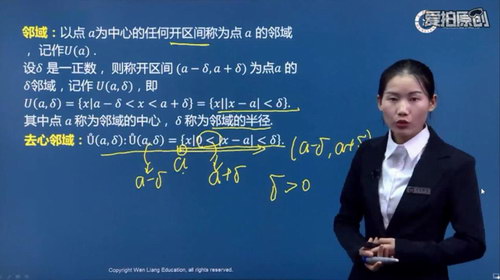 爱拍原创
邻域：以点 a为中心的任何开区间称为点 a 的邻域
，记作U(a)．
设δ 是一正数，则称开区间 (a − δ, a + δ) 为点a 的
δ邻域，记作 U(a, δ)，即
U(a, δ) = {x|a − δ < x < a + δ} = {x||x − a| < δ}.
其中点 a 称为邻域的中心，δ 称为邻域的半径.
去心邻域：Û(a, δ): Û(a, δ) = {x|0 < |x − a| < δ}.
(a-δ, a+δ)
a
a-δ
a+δ
δ>0
Copyright Wan Liang Education, all rights reserved